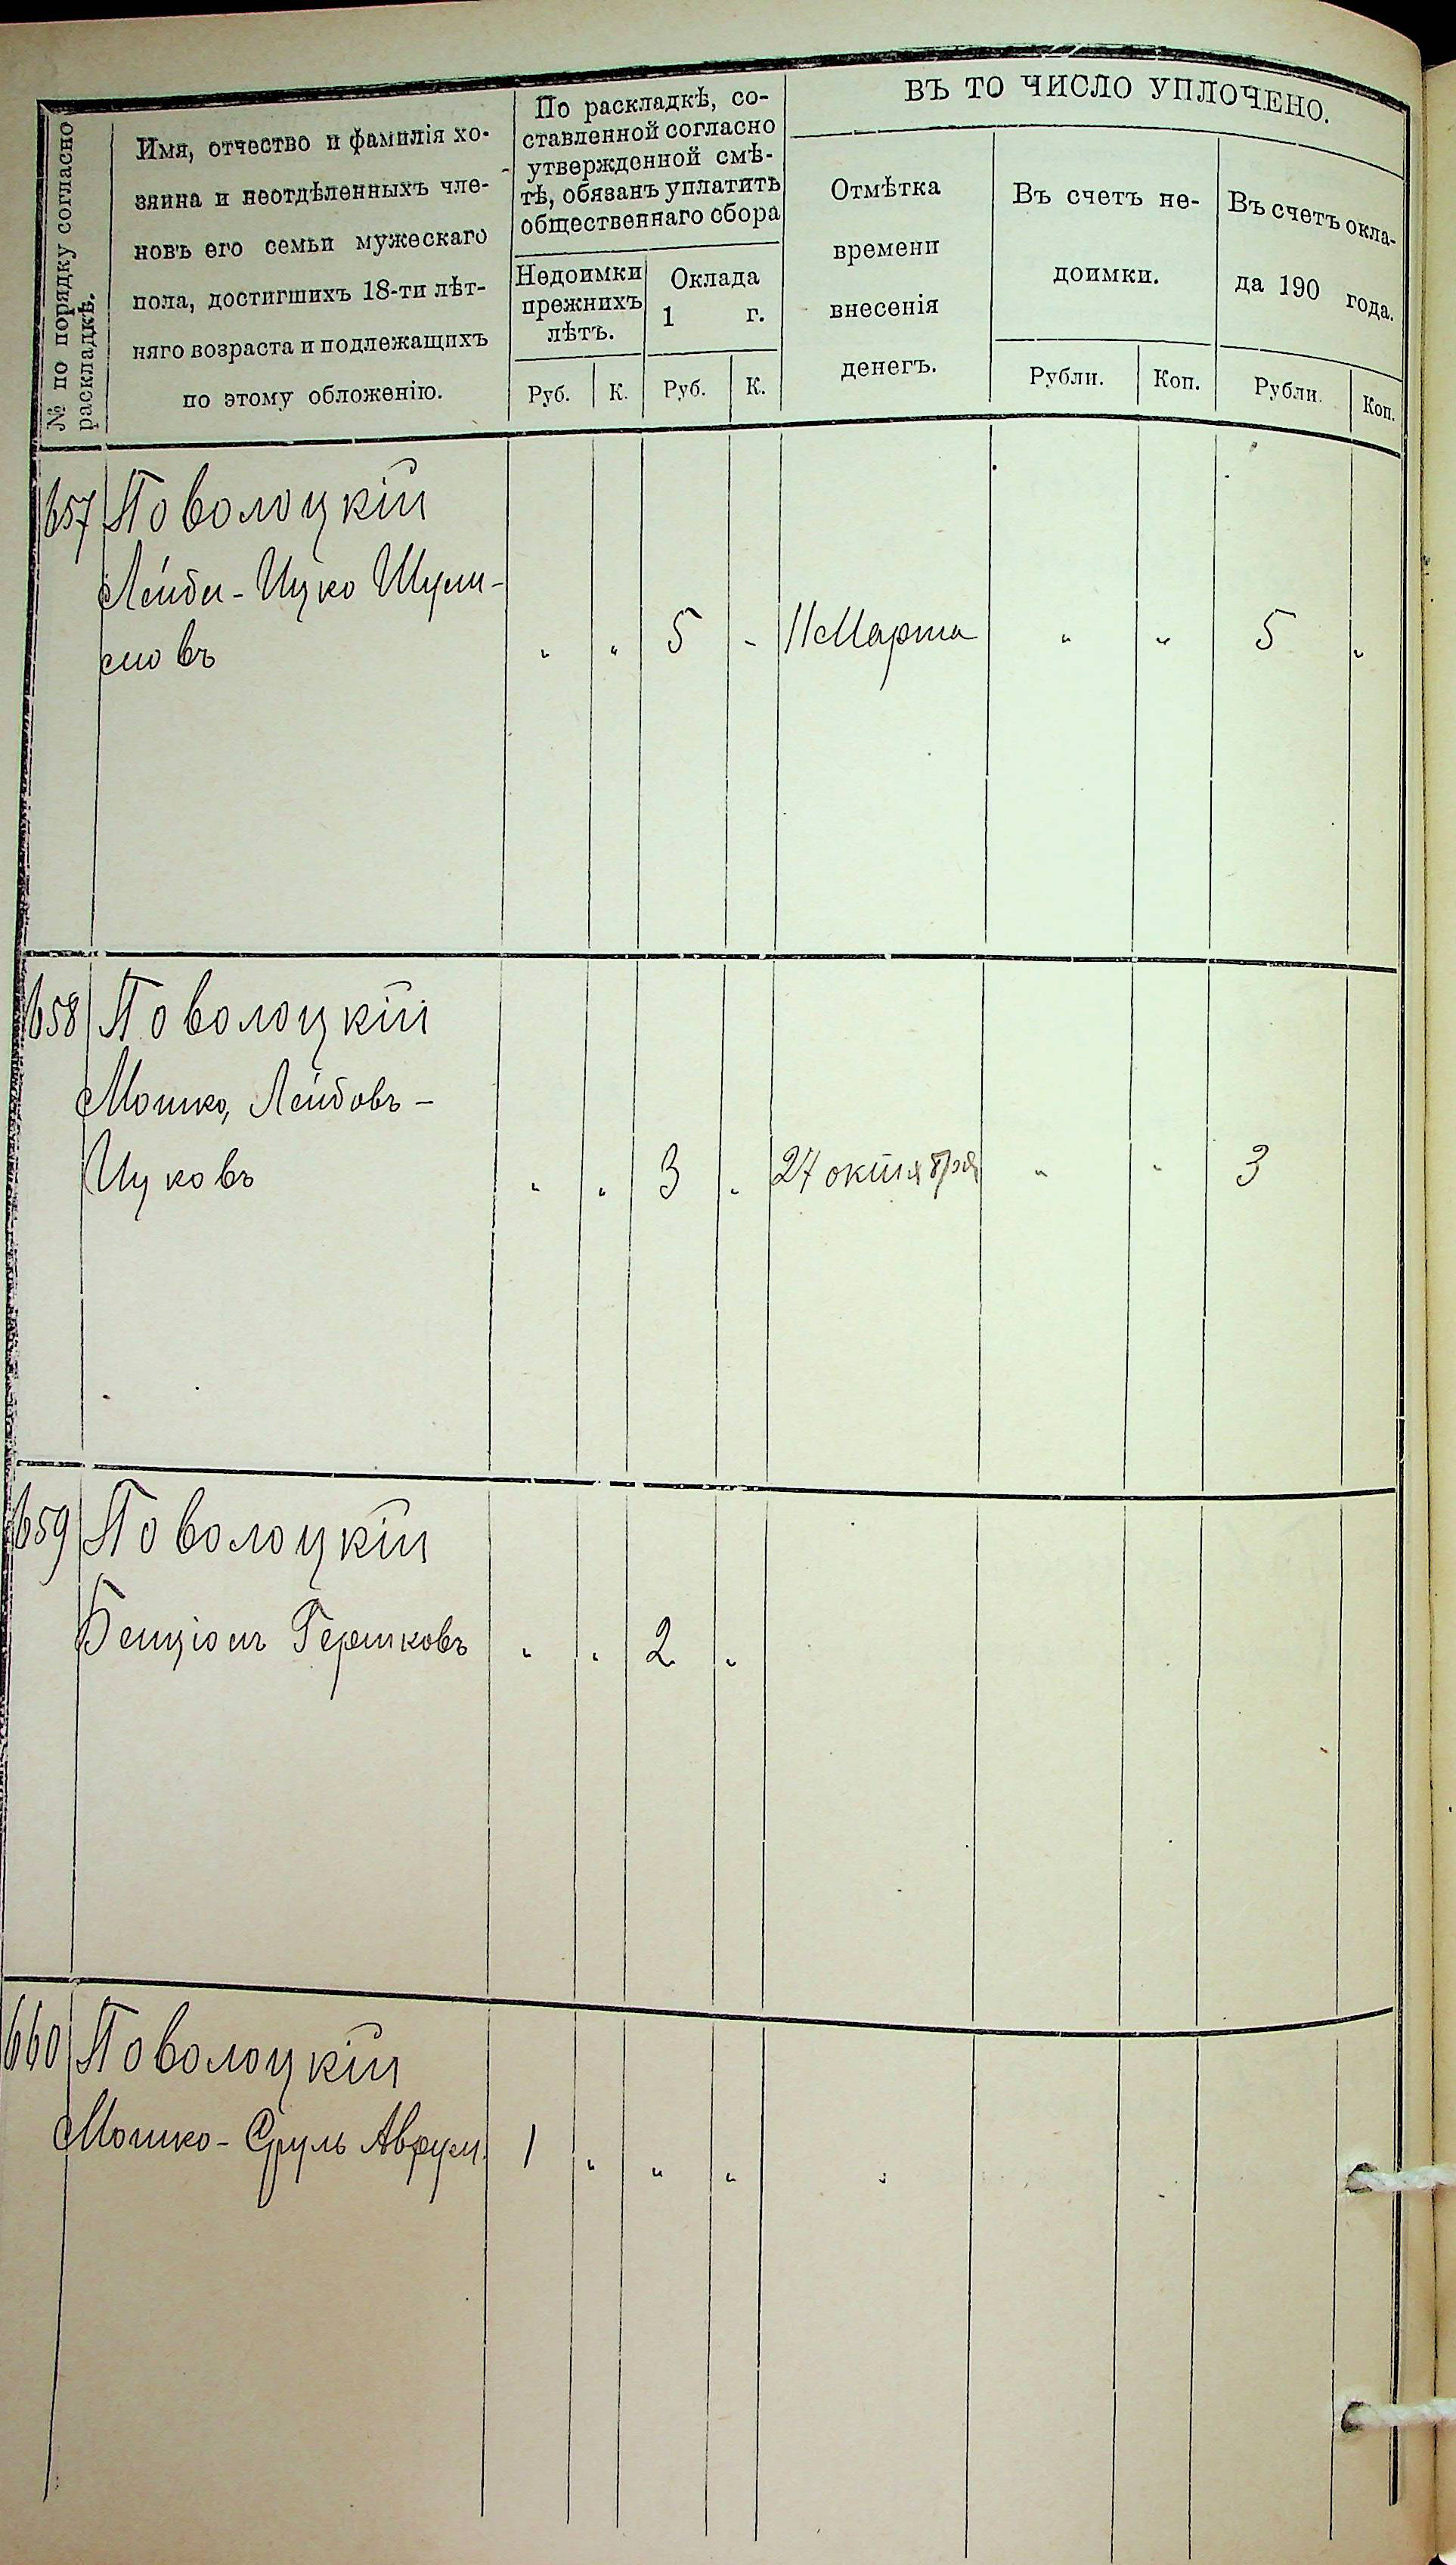 № по порядку согласно
раскладкѣ.
Имя, отчество и фамилія хо-
зяина и неотдѣленныхъ чле-
новъ его семьи мужескаго
пола, достигшихъ 18-ти лѣт-
няго возраста и подлежащихъ
по этому обложенію.
По раскладкѣ, со-
ставленной согласно
утвержденной смѣ-
тѣ, обязанъ уплатить
общественнаго сбора
Недоимки
прежнихъ
лѣтъ.
Оклада
1 г.
Руб. К. Руб. К.
ВЪ ТО ЧИСЛО УПЛОЧЕНО.
Отмѣтка
времени
внесенія
денегъ.
Въ счетъ не-
доимки.
Рубли. Коп.
Въ счетъ окла-
да 190 года.
Рубли. Коп.
657 Поволоцкій
Лейби-Ицко Шули-
мовъ „ „ 5 „ 11 Марта „ „ 5 „
658 Поволоцкій
Мошко, Лейбовъ-
Ицковъ „ „ 3 „ 27 октября „ „ 3
659 Поволоцкій
Бенціонъ Гершковъ „ „ 2 „
660 Поволоцкій
Мошко-Сруль Аврум. 1 „ „ „